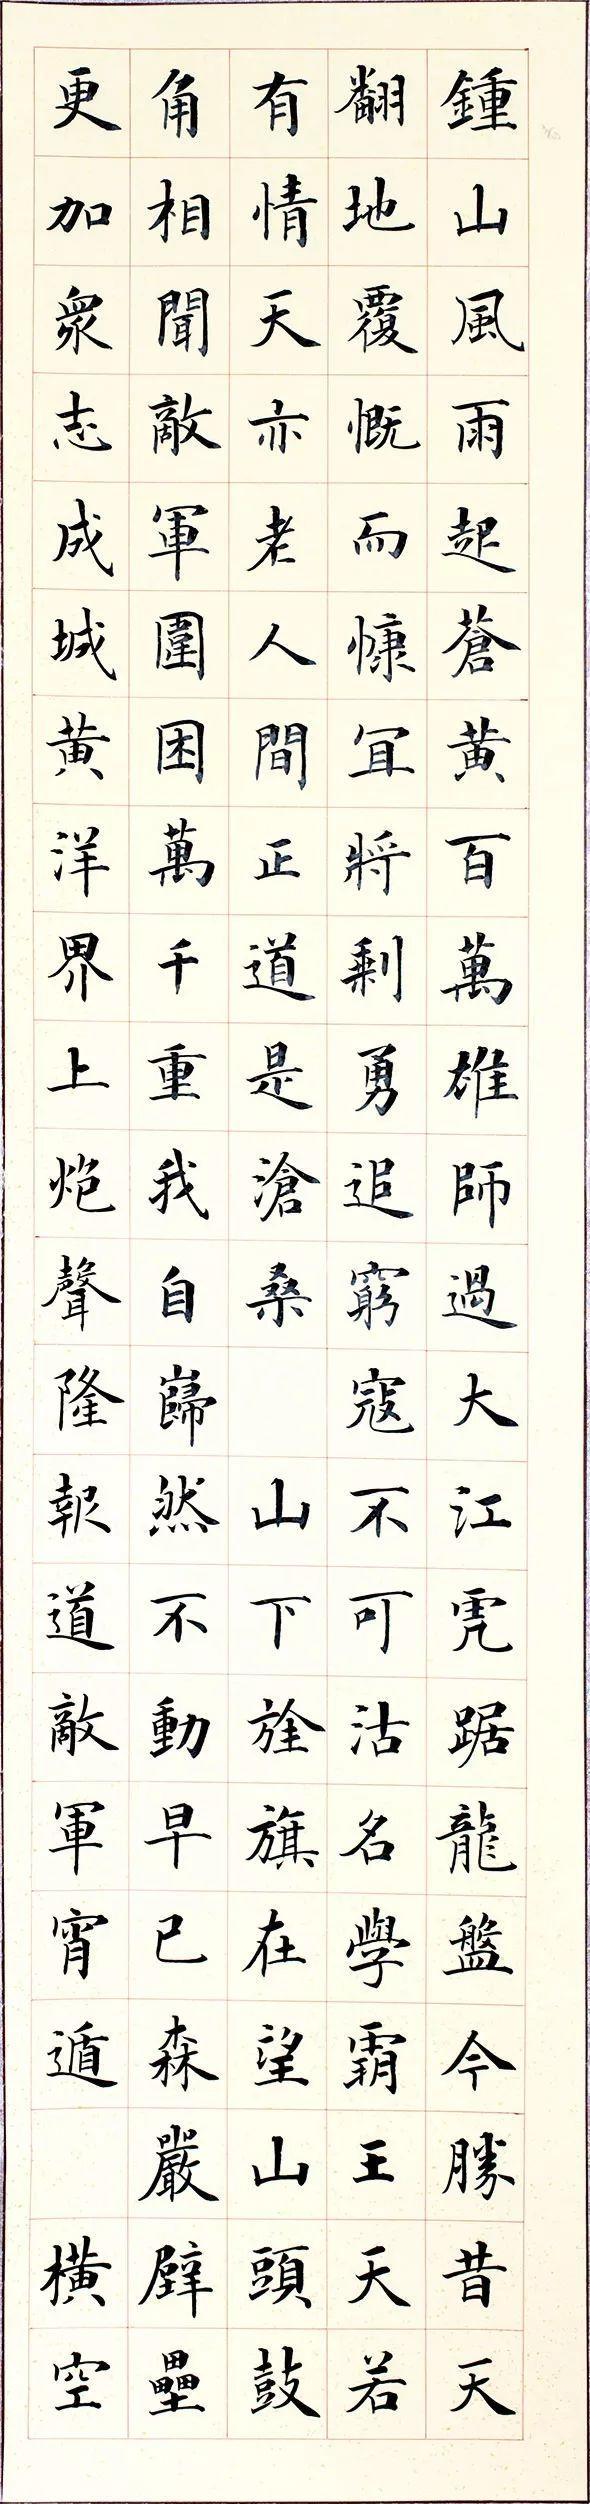 鍾山風雨起蒼黃百萬雄師過大江虎踞龍盤今勝昔天
翻地覆慨而慷宜將剩勇追窮寇不可沽名學霸王天若
有情天亦老人間正道是滄桑 山下旌旗在望山頭鼓
角相聞敵軍圍困萬千重我自巋然不動早已森嚴壁壘
更加衆志成城黃洋界上炮聲隆報道敵軍宵遁 橫空